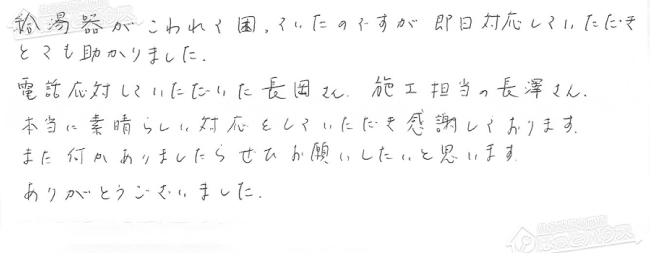 給湯器がこわれて困っていたのですが即日対応していただき
とても助かりました.
電話応対していただいた長岡さん. 施工担当の長澤さん.
本当に素晴らしい対応をしていただき感謝しております.
また何かありましたらぜひお願いしたいと思います.
ありがとうございました.